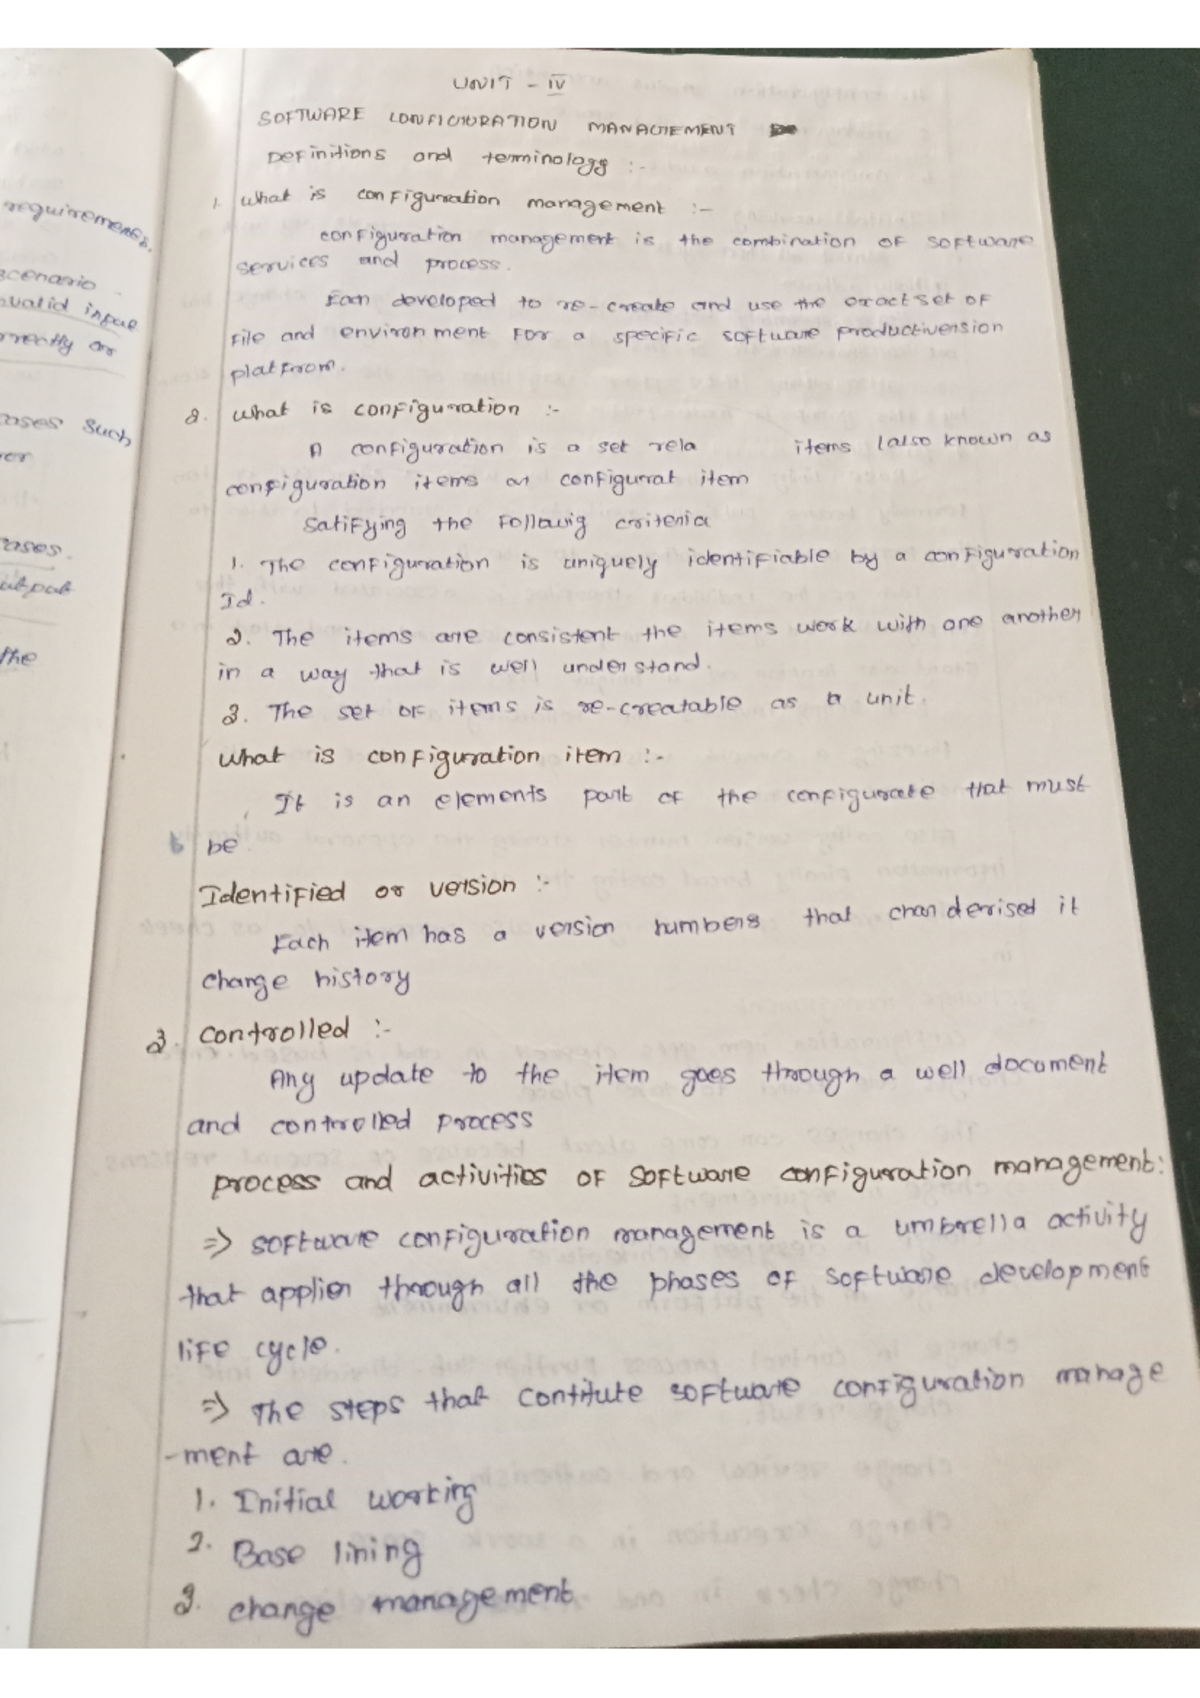 UNIT - IV
SOFTWARE CONFIGURATION MANAGEMENT
Definitions and terminology :-
1. What is configuration management :-
configuration management is the combination of software
services and process.
developed to re-create and use the exact set of
file and environment for a specific software product version
platfrom.
2. What is configuration :-
A configuration is a set rela items (also known as
configuration items or configurat item
Satifying the Followig criteria
1. The configuration is uniquely identifiable by a configuration
Id.
2. The items are consistent the items work with one another
in a way that is well understand.
3. The set of items is re-creatable as a unit.
What is configuration item :-
It is an elements part of the configurate that must
be
Identified or version :-
Each item has a version numbers that it
change history
3. controlled :-
Any update to the item goes through a well document
and controlled process
process and activities of software configuration management:
=> software configuration management is a umbrella activity
that applier through all the phases of software development
life cycle.
=> The steps that contitute software configuration manage
-ment are.
1. Initial working
2. Base lining
3. change management
requirements.
scenario
valid input
or
cases such
cases.
output
the